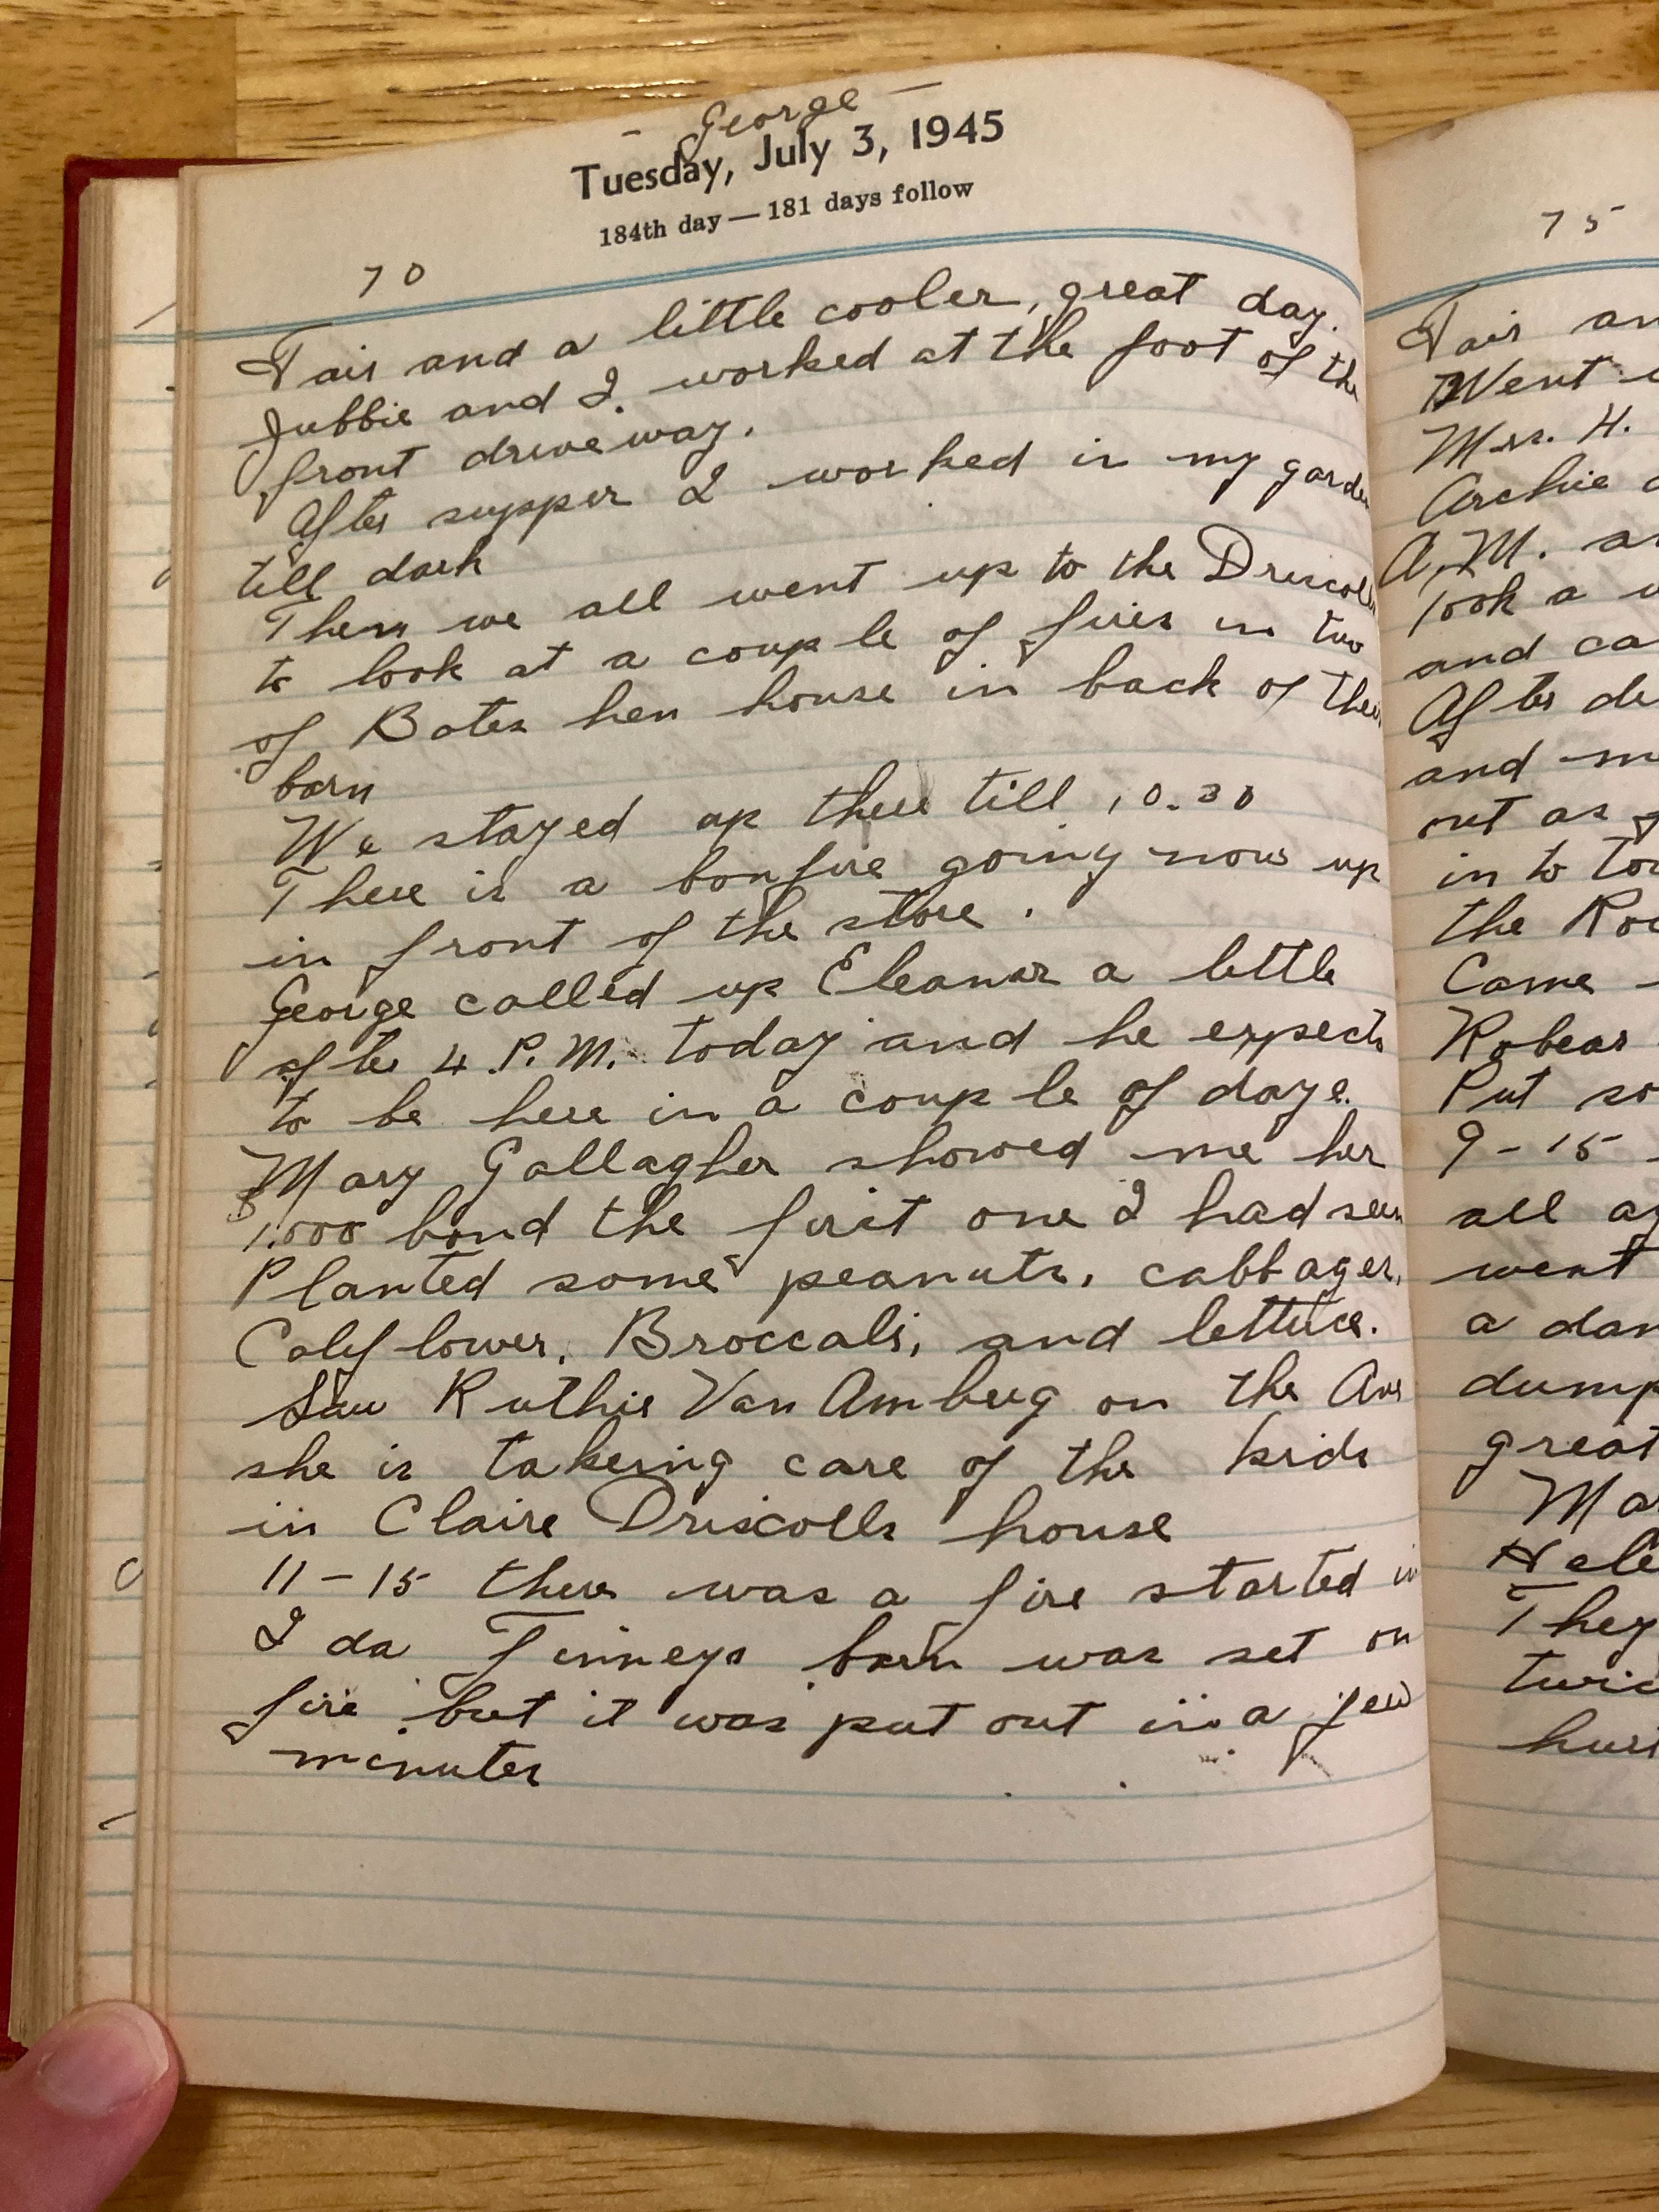 - George -
Tuesday, July 3, 1945
184th day — 181 days follow
70
Fair and a little cooler, great day.
Jubbie and I. worked at the foot of the
front driveway.
After supper I worked in my garden
till dark
Then we all went up to the Driscolls
to look at a couple of fires in two
of Bates hen house in back of their
barn
We stayed up there till 10.30
There is a bonfire going now up
in front of the store.
George called up Eleanor a little
after 4 P.M. today and he expects
to be here in a couple of days.
Mary Gallagher showed me her
$1,000 bond the first one I had seen
Planted some peanuts, cabbages,
Calyflower, Broccali, and lettuce.
Saw Ruthie Van Amberg on the Ave
she is takeing care of the kids
in Claire Driscolls house
11-15 there was a fire started in
Ida Finneys barn was set on
fire but it was put out in a few
minutes
75
Fair an
Went
Mrs. H.
Archie
A.M. a
took a
and ca
After de
and m
out as
in to to
the Ro
Came
Robear
Put so
9-15
all a
went
a dan
dump
great
Ma
Hele
They
twic